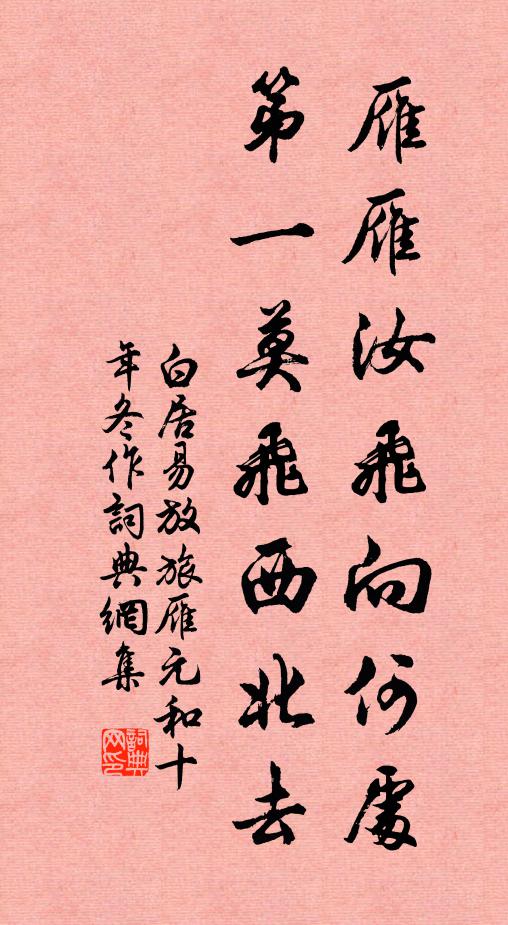 雁雁汝飛向何處
第一莫飛西北去
白居易放旅雁元和十
年冬作詞典網集
詞典
网印